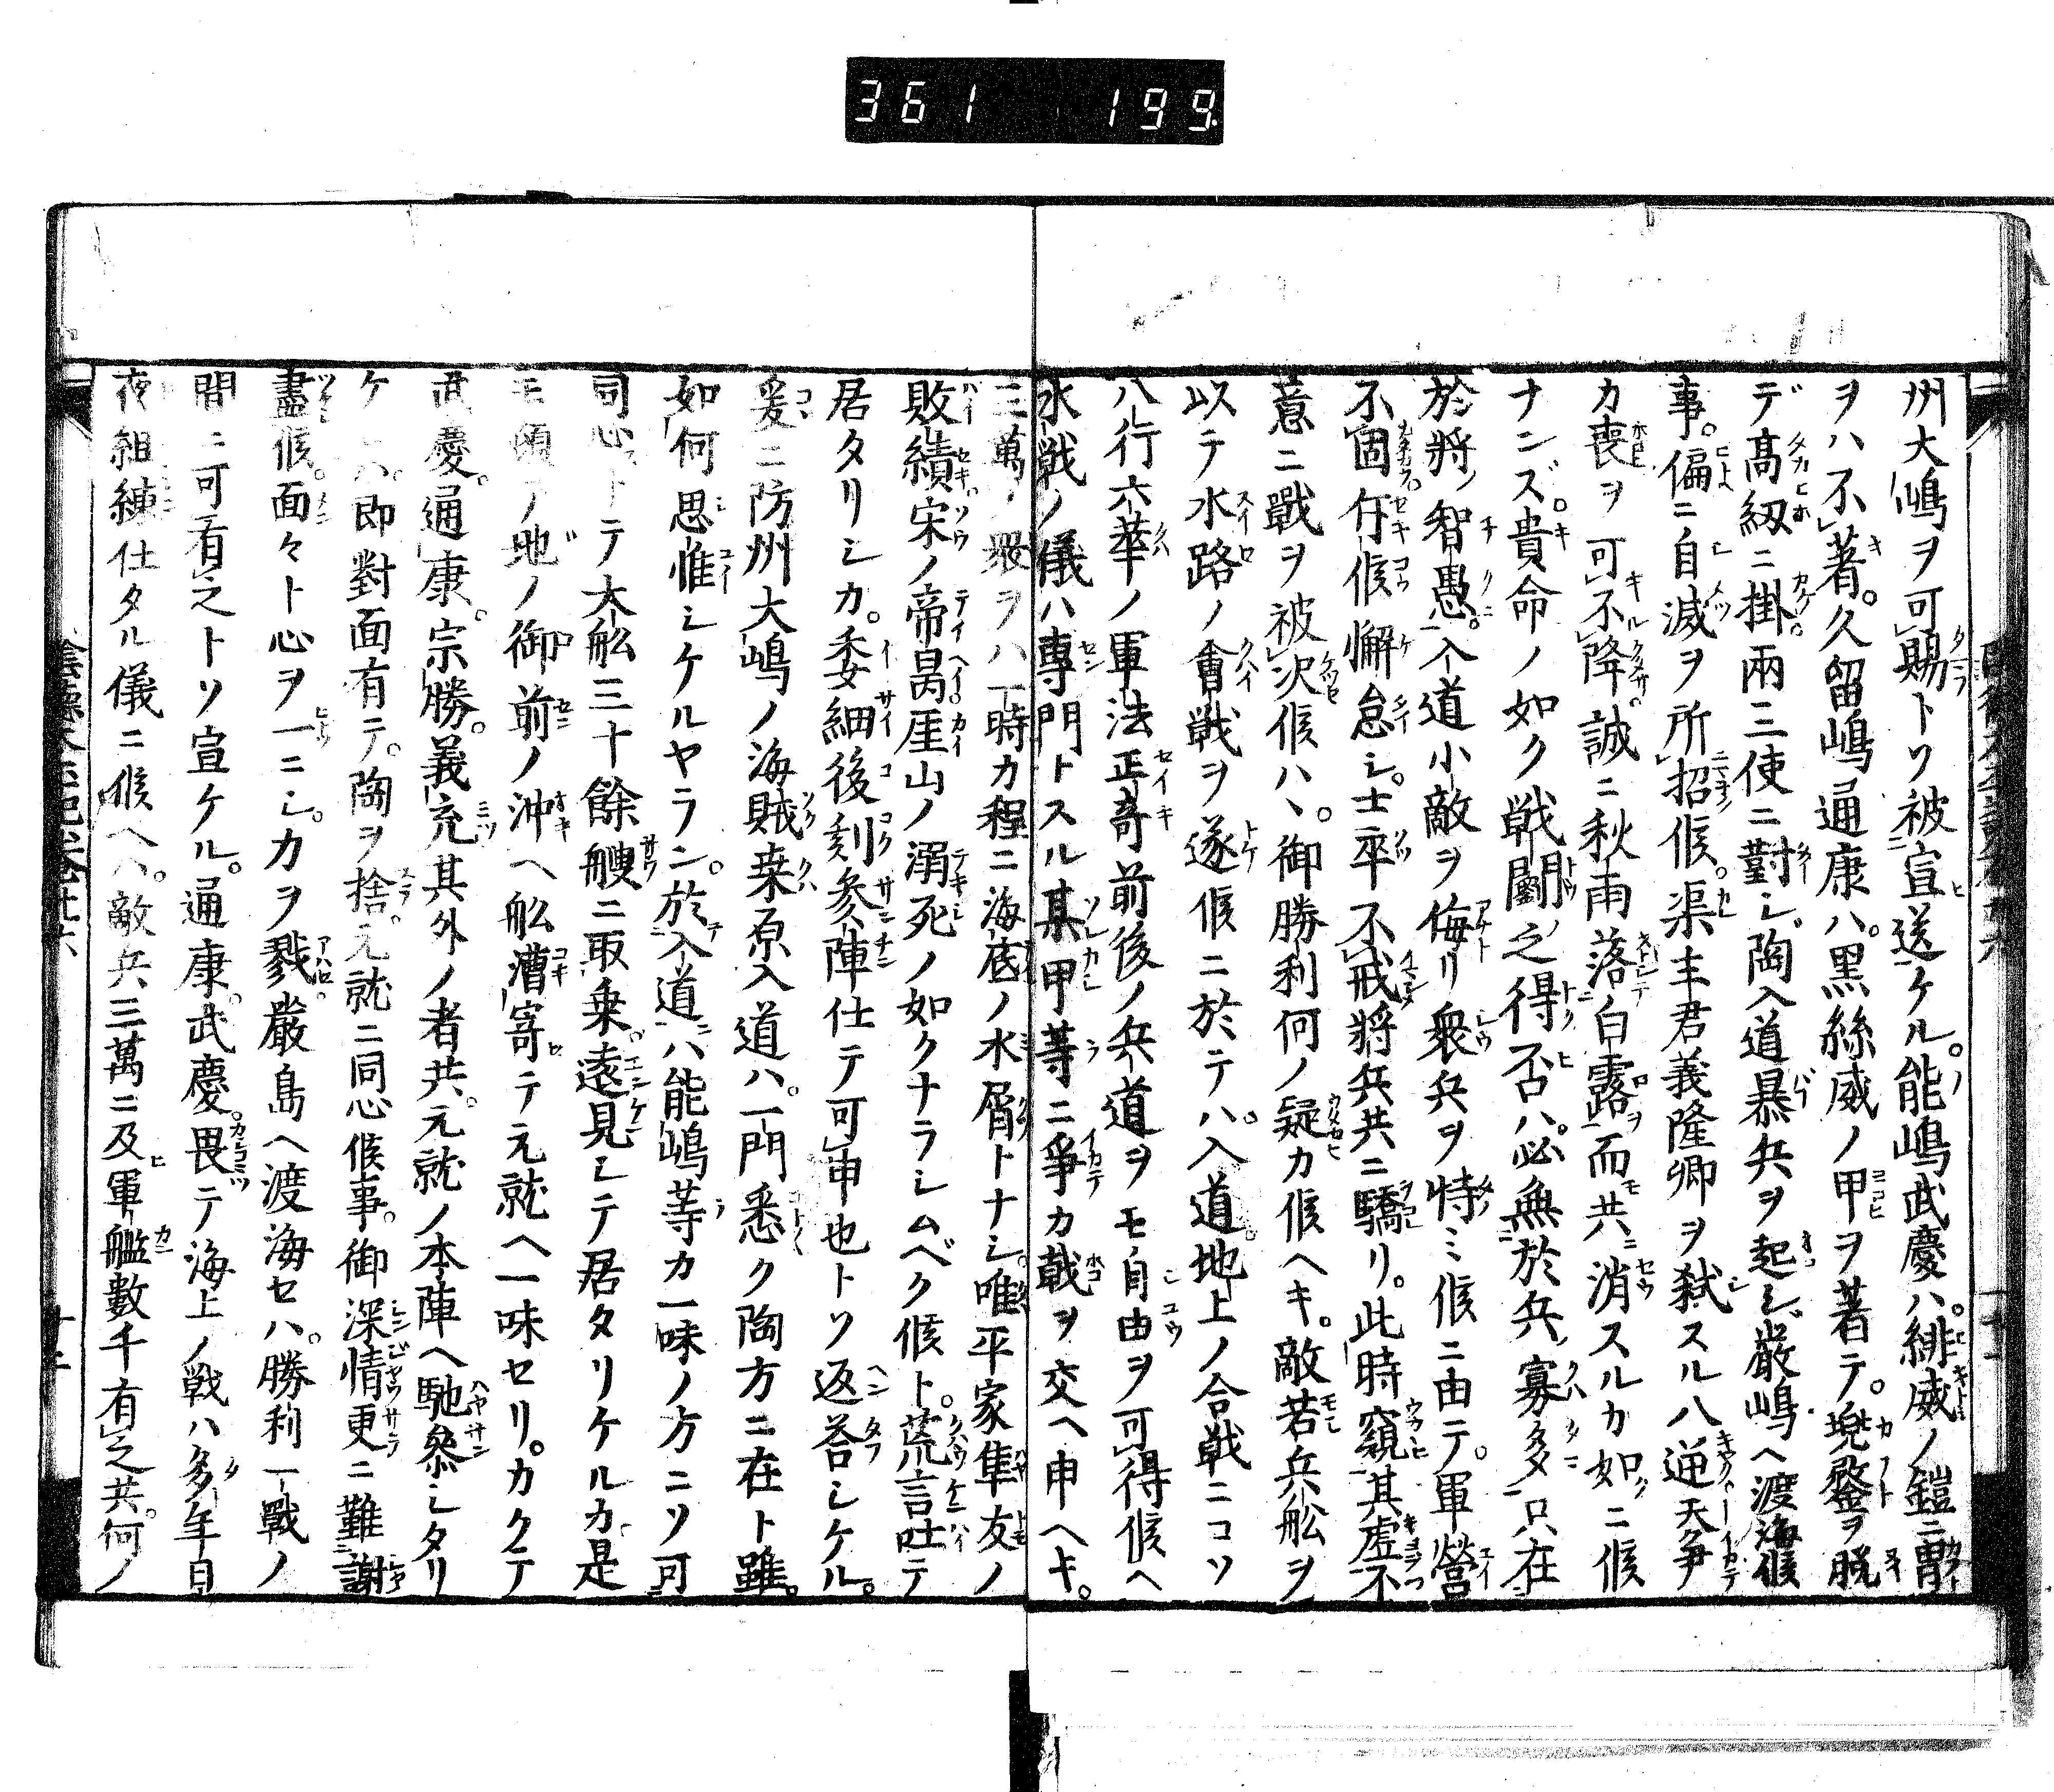 361 199
州大嶋ヲ可賜トソ被宣送ケル。能嶋武慶ハ。緋威ノ鎧ニ冑
ヲハ不著。久留嶋通康ハ。黒絲威ノ甲ヲ著テ。兜鍪ヲ脱
デ髙紉ニ掛。兩三使ニ對シ。陶入道暴兵ヲ起シ。嚴嶋ヘ渡海候
事。偏ニ自滅ヲ所招候。渠主君義隆卿ヲ弑スル八逆天爭
カ喪ヲ可不降。誠ニ秋雨落白露而共消スルカ如ニ候
ナンズ。貴命ノ如ク戦鬭之得否ハ。必無於兵ノ寡多只在
於將ノ智愚。入道小敵ヲ侮リ衆兵ヲ恃ミ候ニ由テ。軍營
不固斥候懈怠シ。士卒不戒將兵共ニ驕リ。此時窺其虚不
意ニ戰ヲ被决候ハヽ。御勝利何ノ疑カ候ヘキ。敵若兵舩ヲ
以テ水路ノ會戦ヲ遂候ニ於テハ。入道地上ノ合戦ニコソ
八行六華ノ軍法正竒前後ノ兵道ヲモ自由ヲ可得候ヘ
水戦ノ儀ハ專門トスル某甲等ニ爭カ戟ヲ交ヘ申ヘキ。
三萬ノ衆ヲハ一時カ程ニ海底ノ水屑トナシ。唯平家隼友ノ
敗績宋ノ帝昺厓山ノ溺死ノ如クナラシムベク候ト。荒言吐テ
居タリシカ。委細後刻參陣仕テ可申也トソ返荅シケル。
爰ニ防州大嶋ノ海賊桒原入道ハ。一門悉ク陶方ニ在ト雖。
如何思惟シケルヤラン。於入道ハ能嶋等カ一味ノ方ニソ可
同心トテ大舩三十餘艘ニ取乗。遠見シテ居タリケルカ是
モ頓テ地ノ御前ノ沖ヘ舩漕寄テ元就ヘ一味セリ。カクテ
武慶。通康。宗勝。義充其外ノ者共。元就ノ本陣ヘ馳參シタリ
ケハ。即對面有テ。陶ヲ捨元就ニ同心候事。御深情更ニ難謝
盡候。面々ト心ヲ一ニシ。力ヲ戮嚴島ヘ渡海セハ。勝利一戰ノ
間ニ可有之トソ宣ケル。通康。武慶。畏テ海上ノ戦ハ多年日
夜組練仕タル儀ニ候ヘハ。敵兵三萬ニ及軍艦數千有之共。何ノ